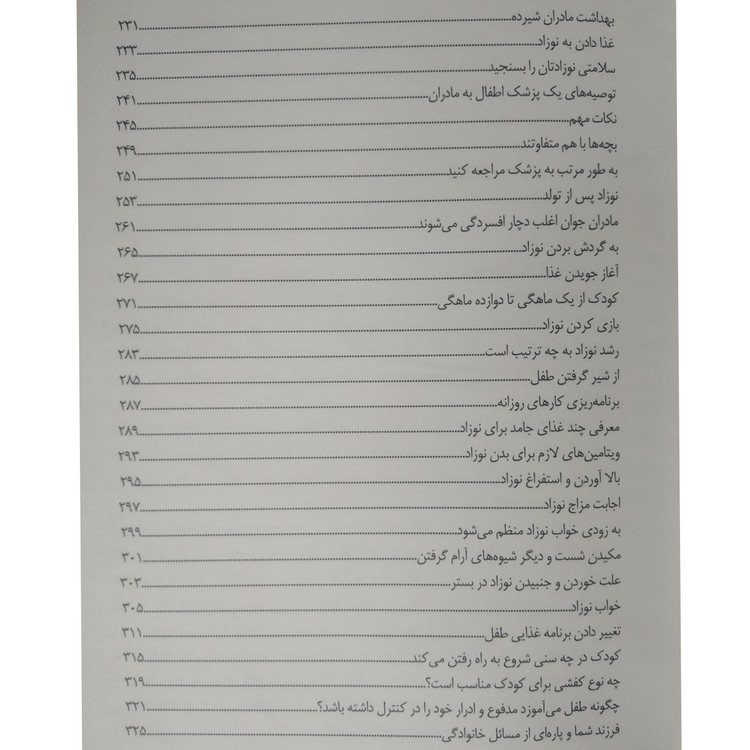 بهداشت مادران شیرده........................۲۳۱
غذا دادن به نوزاد........................۲۳۳
سلامتی نوزادتان را بسنجید........................۲۳۵
توصیه‌های یک پزشک اطفال به مادران........................۲۴۱
نکات مهم........................۲۴۵
بچه‌ها با هم متفاوتند........................۲۴۹
به طور مرتب به پزشک مراجعه کنید........................۲۵۱
نوزاد پس از تولد........................۲۵۳
مادران جوان اغلب دچار افسردگی می‌شوند........................۲۶۱
به گردش بردن نوزاد........................۲۶۵
آغاز جویدن غذا........................۲۶۷
کودک از یک ماهگی تا دوازده ماهگی........................۲۷۱
بازی کردن نوزاد........................۲۷۵
رشد نوزاد به چه ترتیب است........................۲۸۳
از شیر گرفتن طفل........................۲۸۵
برنامه‌ریزی کارهای روزانه........................۲۸۷
معرفی چند غذای جامد برای نوزاد........................۲۸۹
ویتامین‌های لازم برای بدن نوزاد........................۲۹۳
بالا آوردن و استفراغ نوزاد........................۲۹۵
اجابت مزاج نوزاد........................۲۹۷
به زودی خواب نوزاد منظم می‌شود........................۲۹۹
مکیدن شست و دیگر شیوه‌های آرام گرفتن........................۳۰۱
علت خوردن و جنبیدن نوزاد در بستر........................۳۰۳
خواب نوزاد........................۳۰۵
تغییر دادن برنامه غذایی طفل........................۳۱۱
کودک در چه سنی شروع به راه رفتن می‌کند........................۳۱۵
چه نوع کفشی برای کودک مناسب است؟........................۳۱۹
چگونه طفل می‌آموزد مدفوع و ادرار خود را در کنترل داشته باشد؟........................۳۲۱
فرزند شما و پاره‌ای از مسائل خانوادگی........................۳۲۵